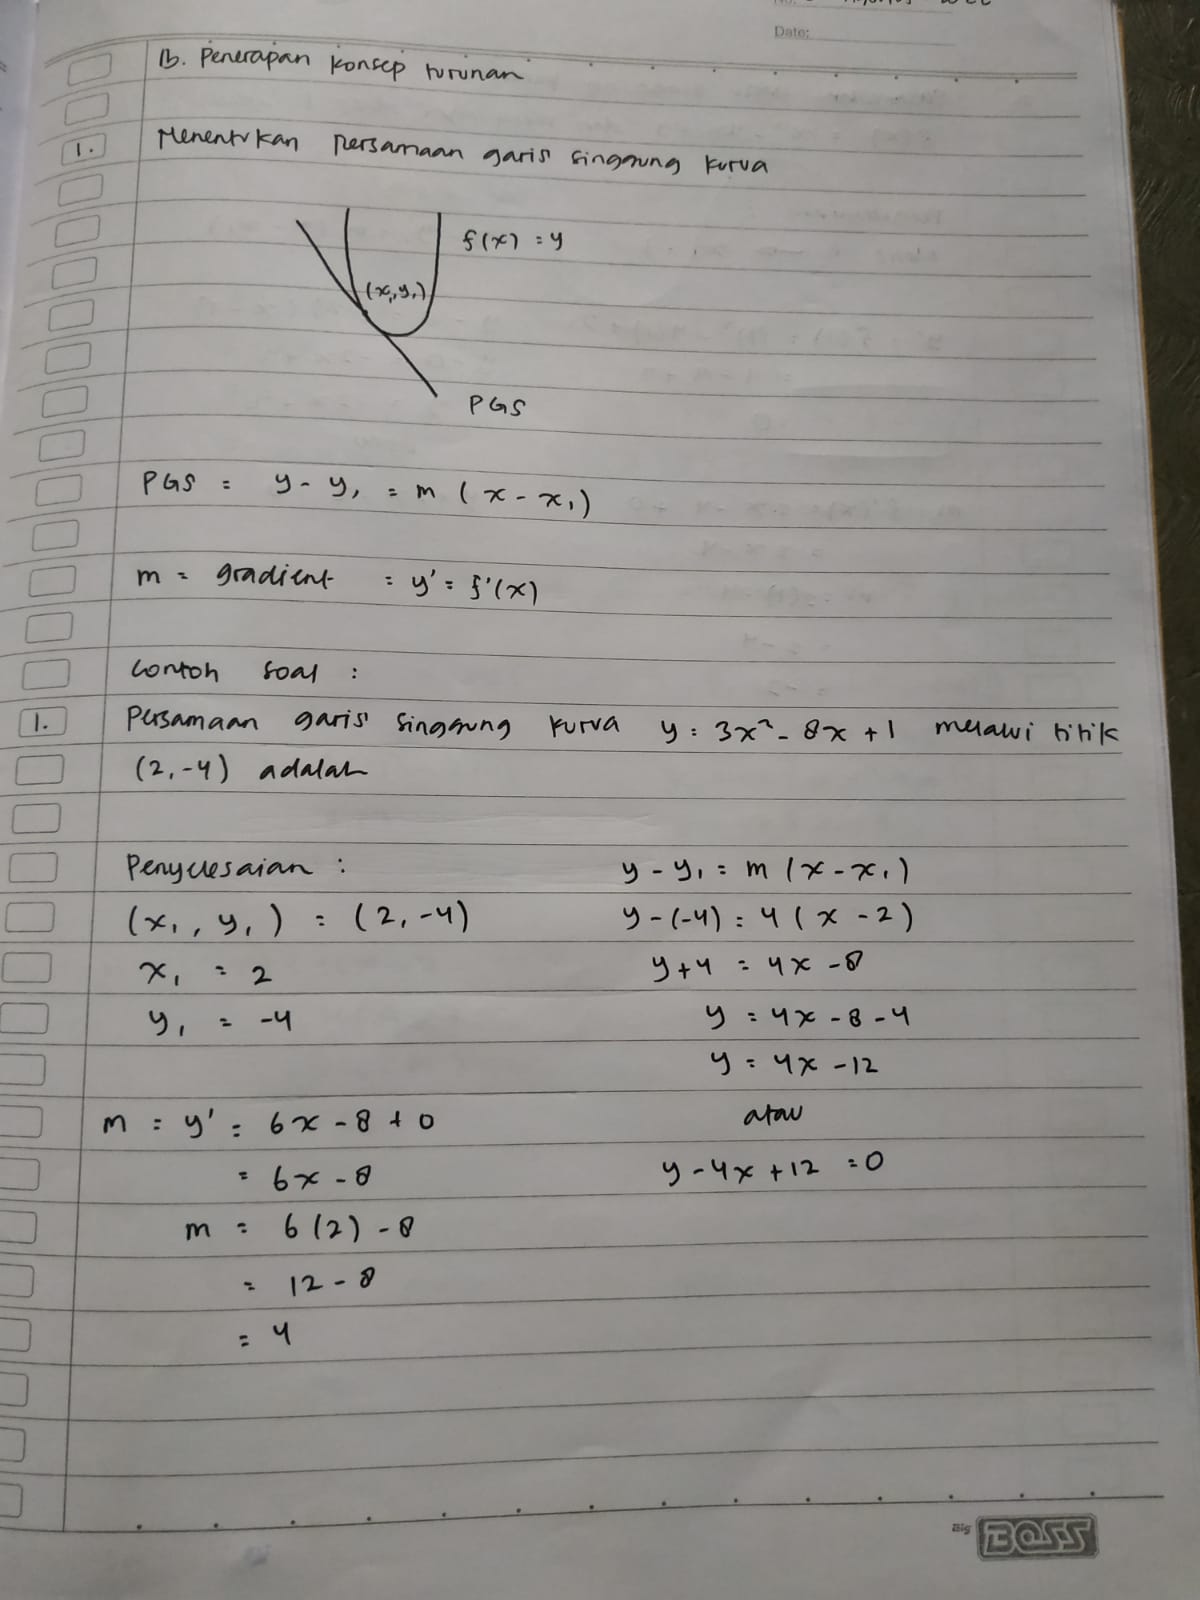 Date:
B. Penerapan konsep turunan
1. Menentukan persamaan garis singgung kurva
f(x) = y
(x₁,y₁)
PGS
PGS = y - y₁ = m (x - x₁)
m = gradient = y' = f'(x)
Contoh soal :
1. Persamaan garis singgung kurva y = 3x² - 8x + 1 melalui titik
(2,-4) adalah
Penyelesaian :
(x₁, y₁) = (2,-4)
x₁ = 2
y₁ = -4
m = y' = 6x - 8 + 0
= 6x - 8
m = 6(2) - 8
= 12 - 8
= 4
y - y₁ = m (x - x₁)
y - (-4) = 4 (x - 2)
y + 4 = 4x - 8
y = 4x - 8 - 4
y = 4x - 12
atau
y - 4x + 12 = 0
Big BOSS